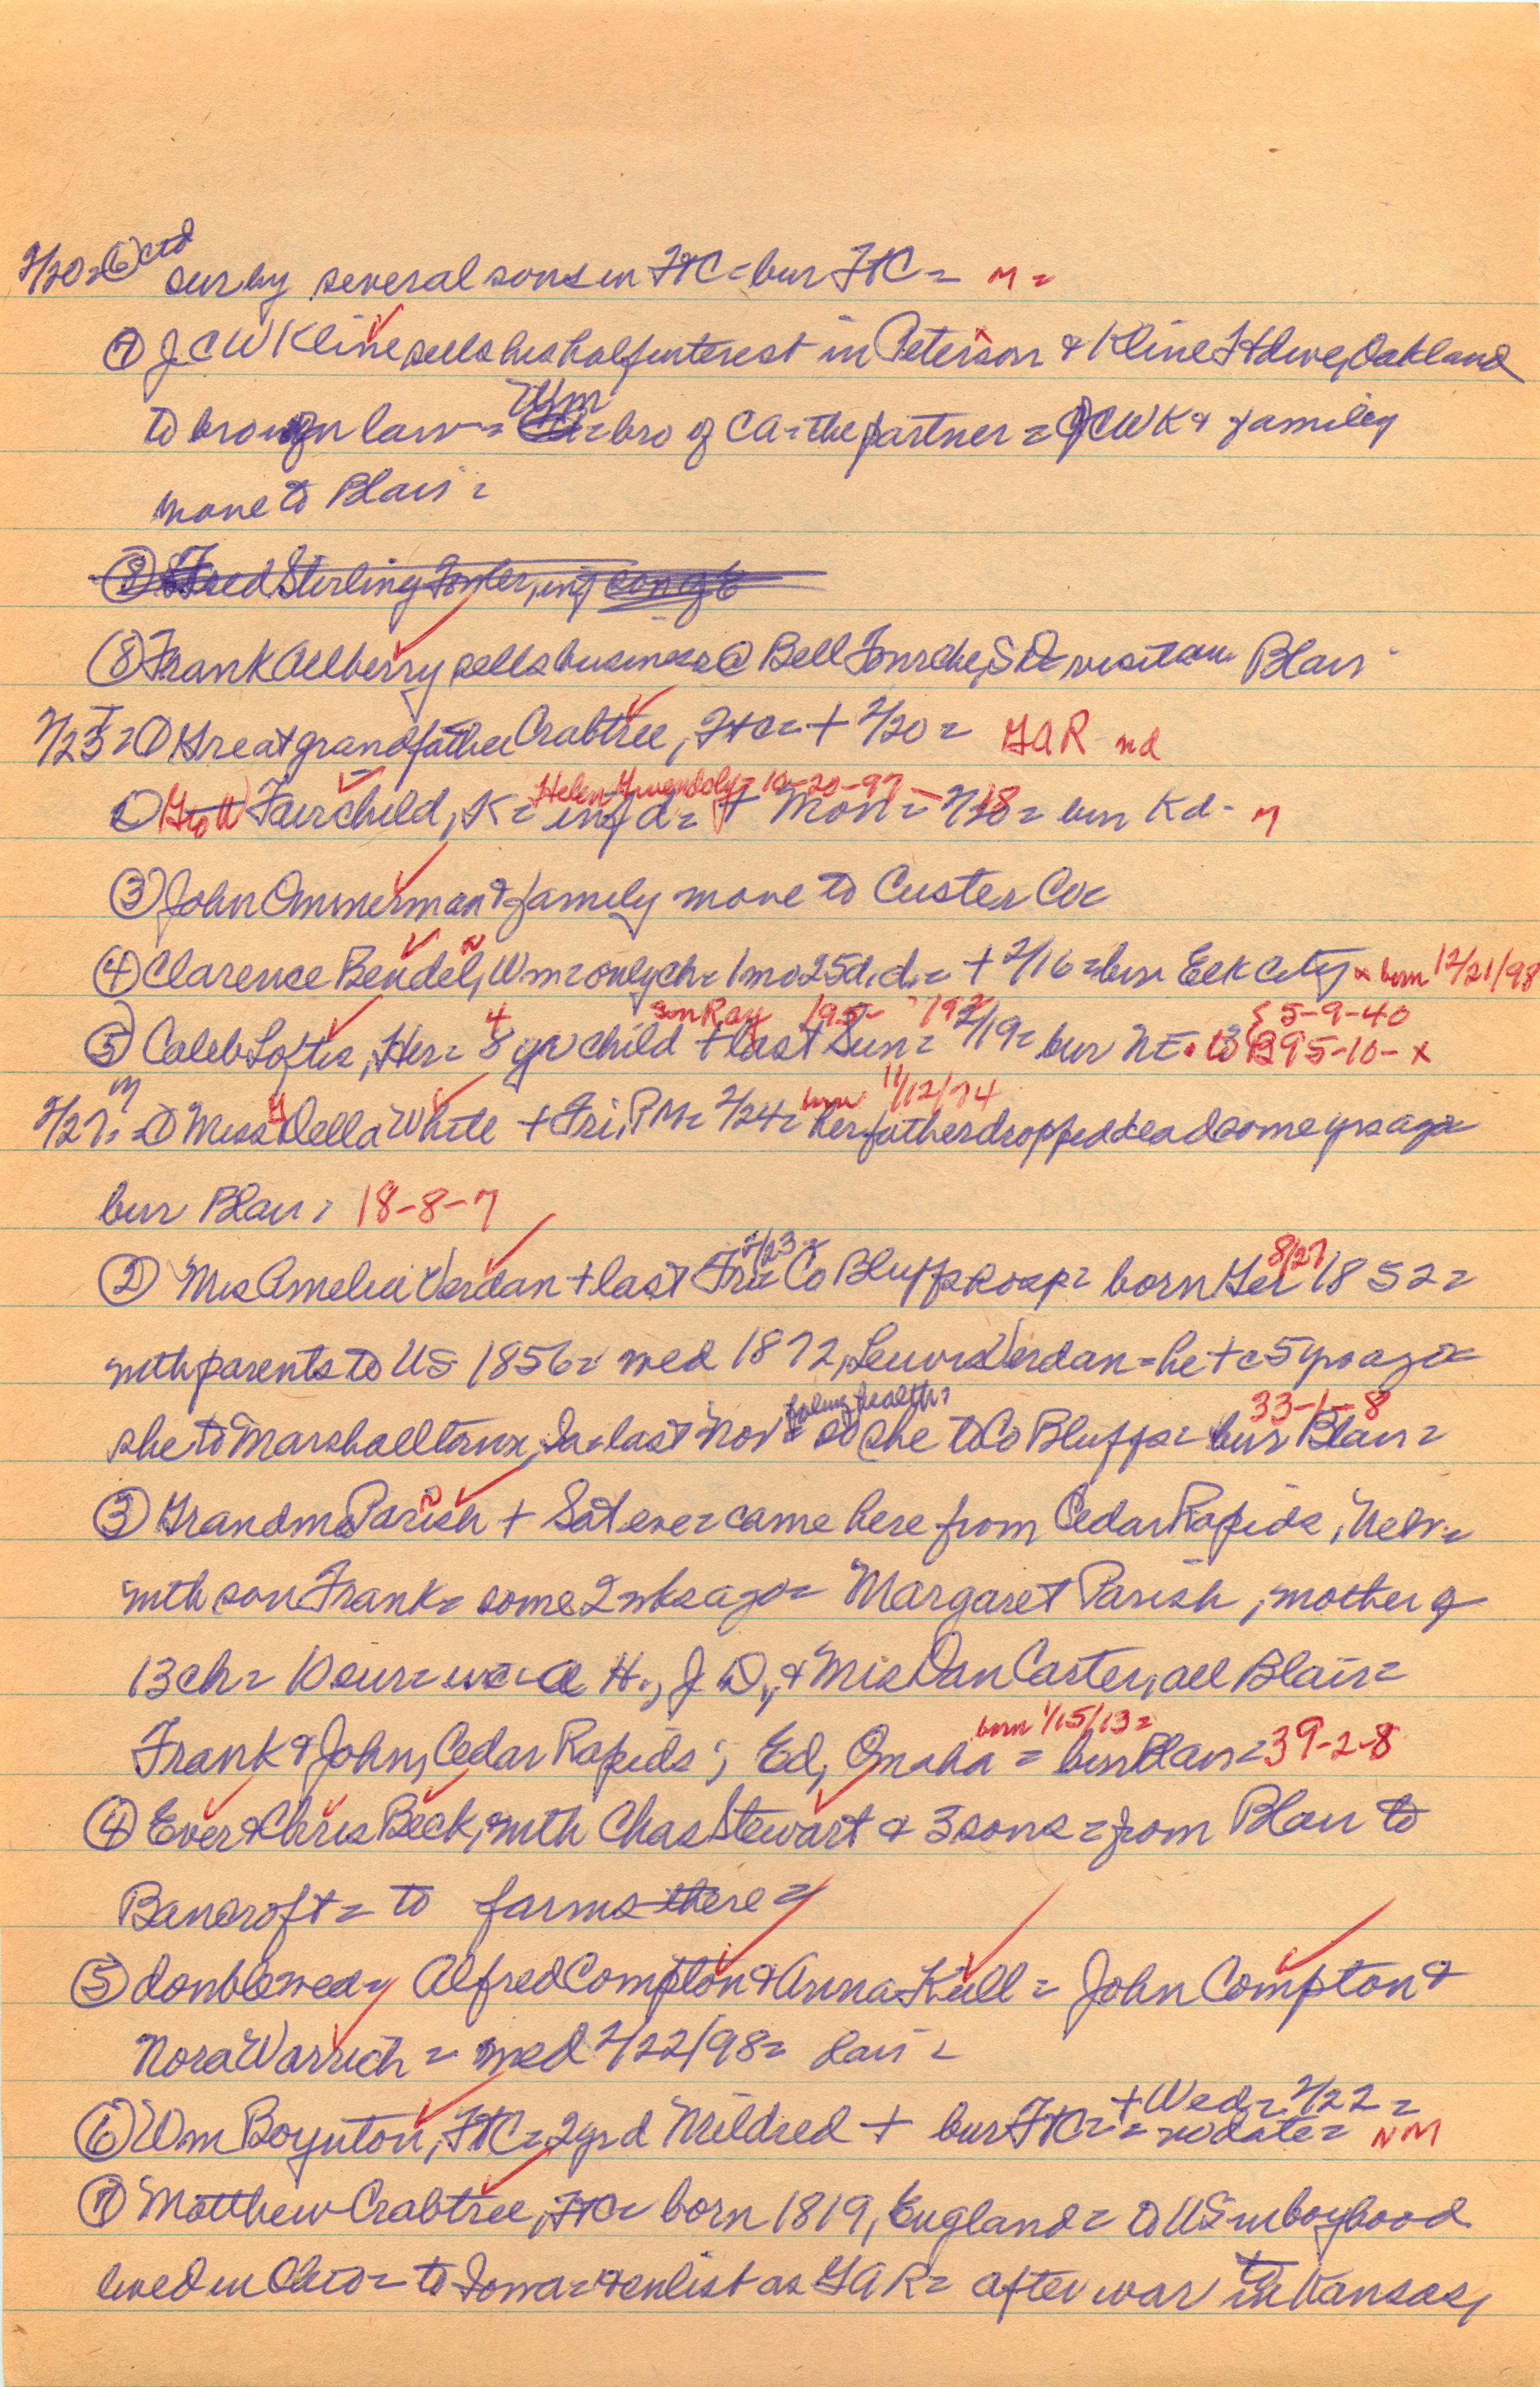 2/20 = ⑥ ctd sur by several sons in FtC = bur FtC = M =
⑦ J C W Kline sells his half interest in Peterson & Kline Hdwe, Oakland
to bro in law = Wm = bro of CA = the partner = JCWK & family
move to Blair =
⑧ Fred Sterling Fowler, inf son of
⑧ Frank Allberry sells business @ Bell Fourche, SD = visit in Blair
2/23 = ① Great grandfather Crabtree, FtC = + 2/20 = GAR nd
② Geo W Fairchild, K = Helen Gwendoly = 10-20-97 - inf d = + Mon = 2/18 = bur Kd - M
③ John Ammerman & family move to Custer Co =
④ Clarence Bendel, Wm = only ch = 1 mo 25 d. d. = + 2/16 = bur Elk City x born 12/21/98
son Ray { 5-9-40
⑤ Caleb Loftis, Her = 4 8 yr child + last Sun = 2/19 = bur NE B95-10- x
2/27 = ① Miss Della White + Fri. PM = 2/24 = born 11/12/74 her father dropped dead some yrs ago =
bur Blair = 18-8-7
② Mrs Amelia Verdan + last Fri = 2/23 = Co Bluffs hosp = born Ger 8/27 1852 =
with parents to US 1856 = wed 1872, Lewis Verdan = he + c 5 yrs ago =
she to Marshalltown, Ia = last Nov = failing health = so she to Co Bluffs = bur Blair = 33-1-8
③ Grandma Parish + Sat eve = came here from Cedar Rapids, Nebr =
with son Frank = some 2 wks ago = Margaret Parish, mother of
13 ch = 10 sur = A H., J D., & Mrs Dan Carter, all Blair =
Frank & John, Cedar Rapids; Ed, Omaha = born 1/15/13 = bur Blair = 39-2-8
④ Ever & Chris Beck, with Chas Stewart & 3 sons = from Blair to
Bancroft = to farms there =
⑤ double wed = Alfred Compton & Anna Kull = John Compton &
Nora Warrich = wed 2/22/98 =
⑥ Wm Boynton, FtC = 2 yr d Mildred + bur FtC = + Wed = 2/22 = no date = NM
⑦ Matthew Crabtree, FtC = born 1819, England = to US in boyhood
lived in Ohio = to Iowa = & enlist as GAR = after war to in Kansas,